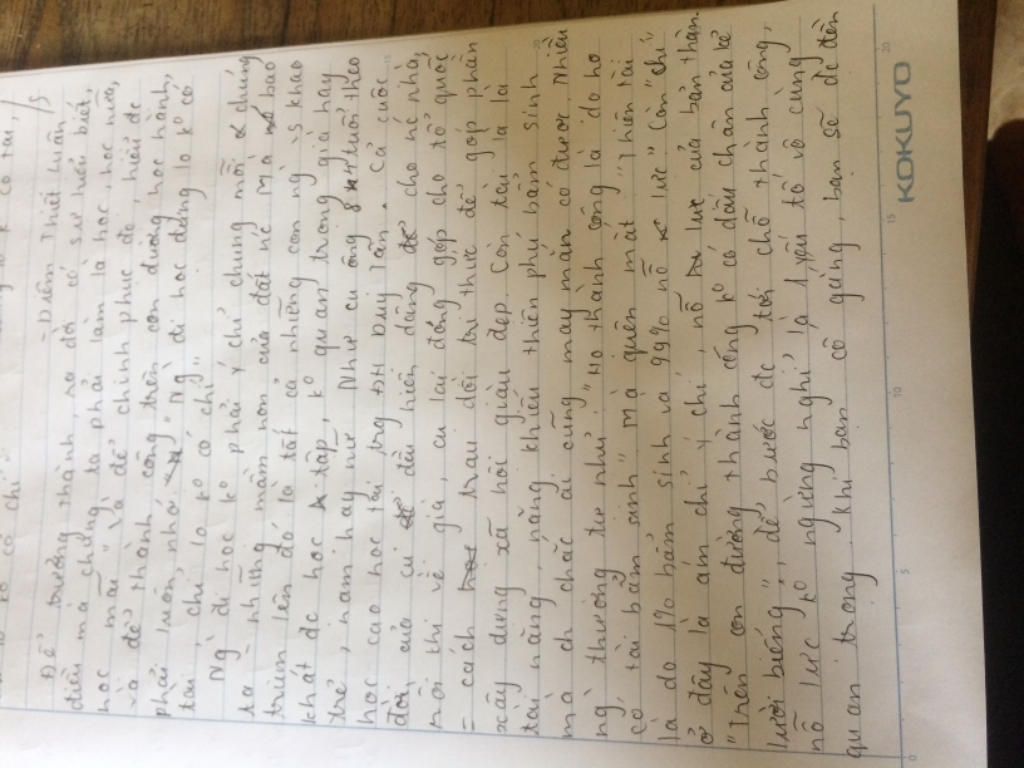 ko có chí.
k có tài,
- Diễm Thiết luân 1/5
Để trưởng thành, ra đời có sự hiểu biết,
điều mà chúng ta phải làm là học, học nữa,
học mãi" và để chinh phục đc, hiểu đc
và để thành công trên con đường học hành,
phải luôn nhớ "Ng đi học đừng lo ko có
tài, chỉ lo ko có chí"
Ng đi học ko phải ý chỉ chung mỗi chúng
ta - những mầm non của đất nc mà bao
trùm lên đó là tất cả những con ng's khao
khát đc học tập, ko quan trọng già hay
trẻ, nam hay nữ. Như cụ ông tuổi theo
học cao học tại trg ĐH Duy Tân. Cả cuộc
đời của cụ đều hiến dâng cho nc nhà,
nói thì về già, cụ lại đóng góp cho tổ quốc
= cách trau dồi tri thức để góp phần
xây dựng xã hội giàu đẹp. Còn tài là là
tài năng, năng khiếu thiên phú bẩm sinh
mà ch chắc ai cũng may mắn có được. Nhiều
ng thường tư nhủ "Họ thành công là do họ
có tài bẩm sinh" Mà quên mất "Thiên tài
là do 1% bẩm sinh và 99% nỗ lực" Còn "chí"
ở đây là ám chỉ ý chí, nỗ lực của bản thân.
"Trên con đường thành công ko có dấu chân của kẻ
lười biếng", để bước đc tới chỗ thành công,
nỗ lực ko ngừng nghỉ là 1 yếu tố vô cùng
quan trọng. Khi bạn cố gắng, bạn sẽ đc đền
0 5 10 15 20
KOKUYO